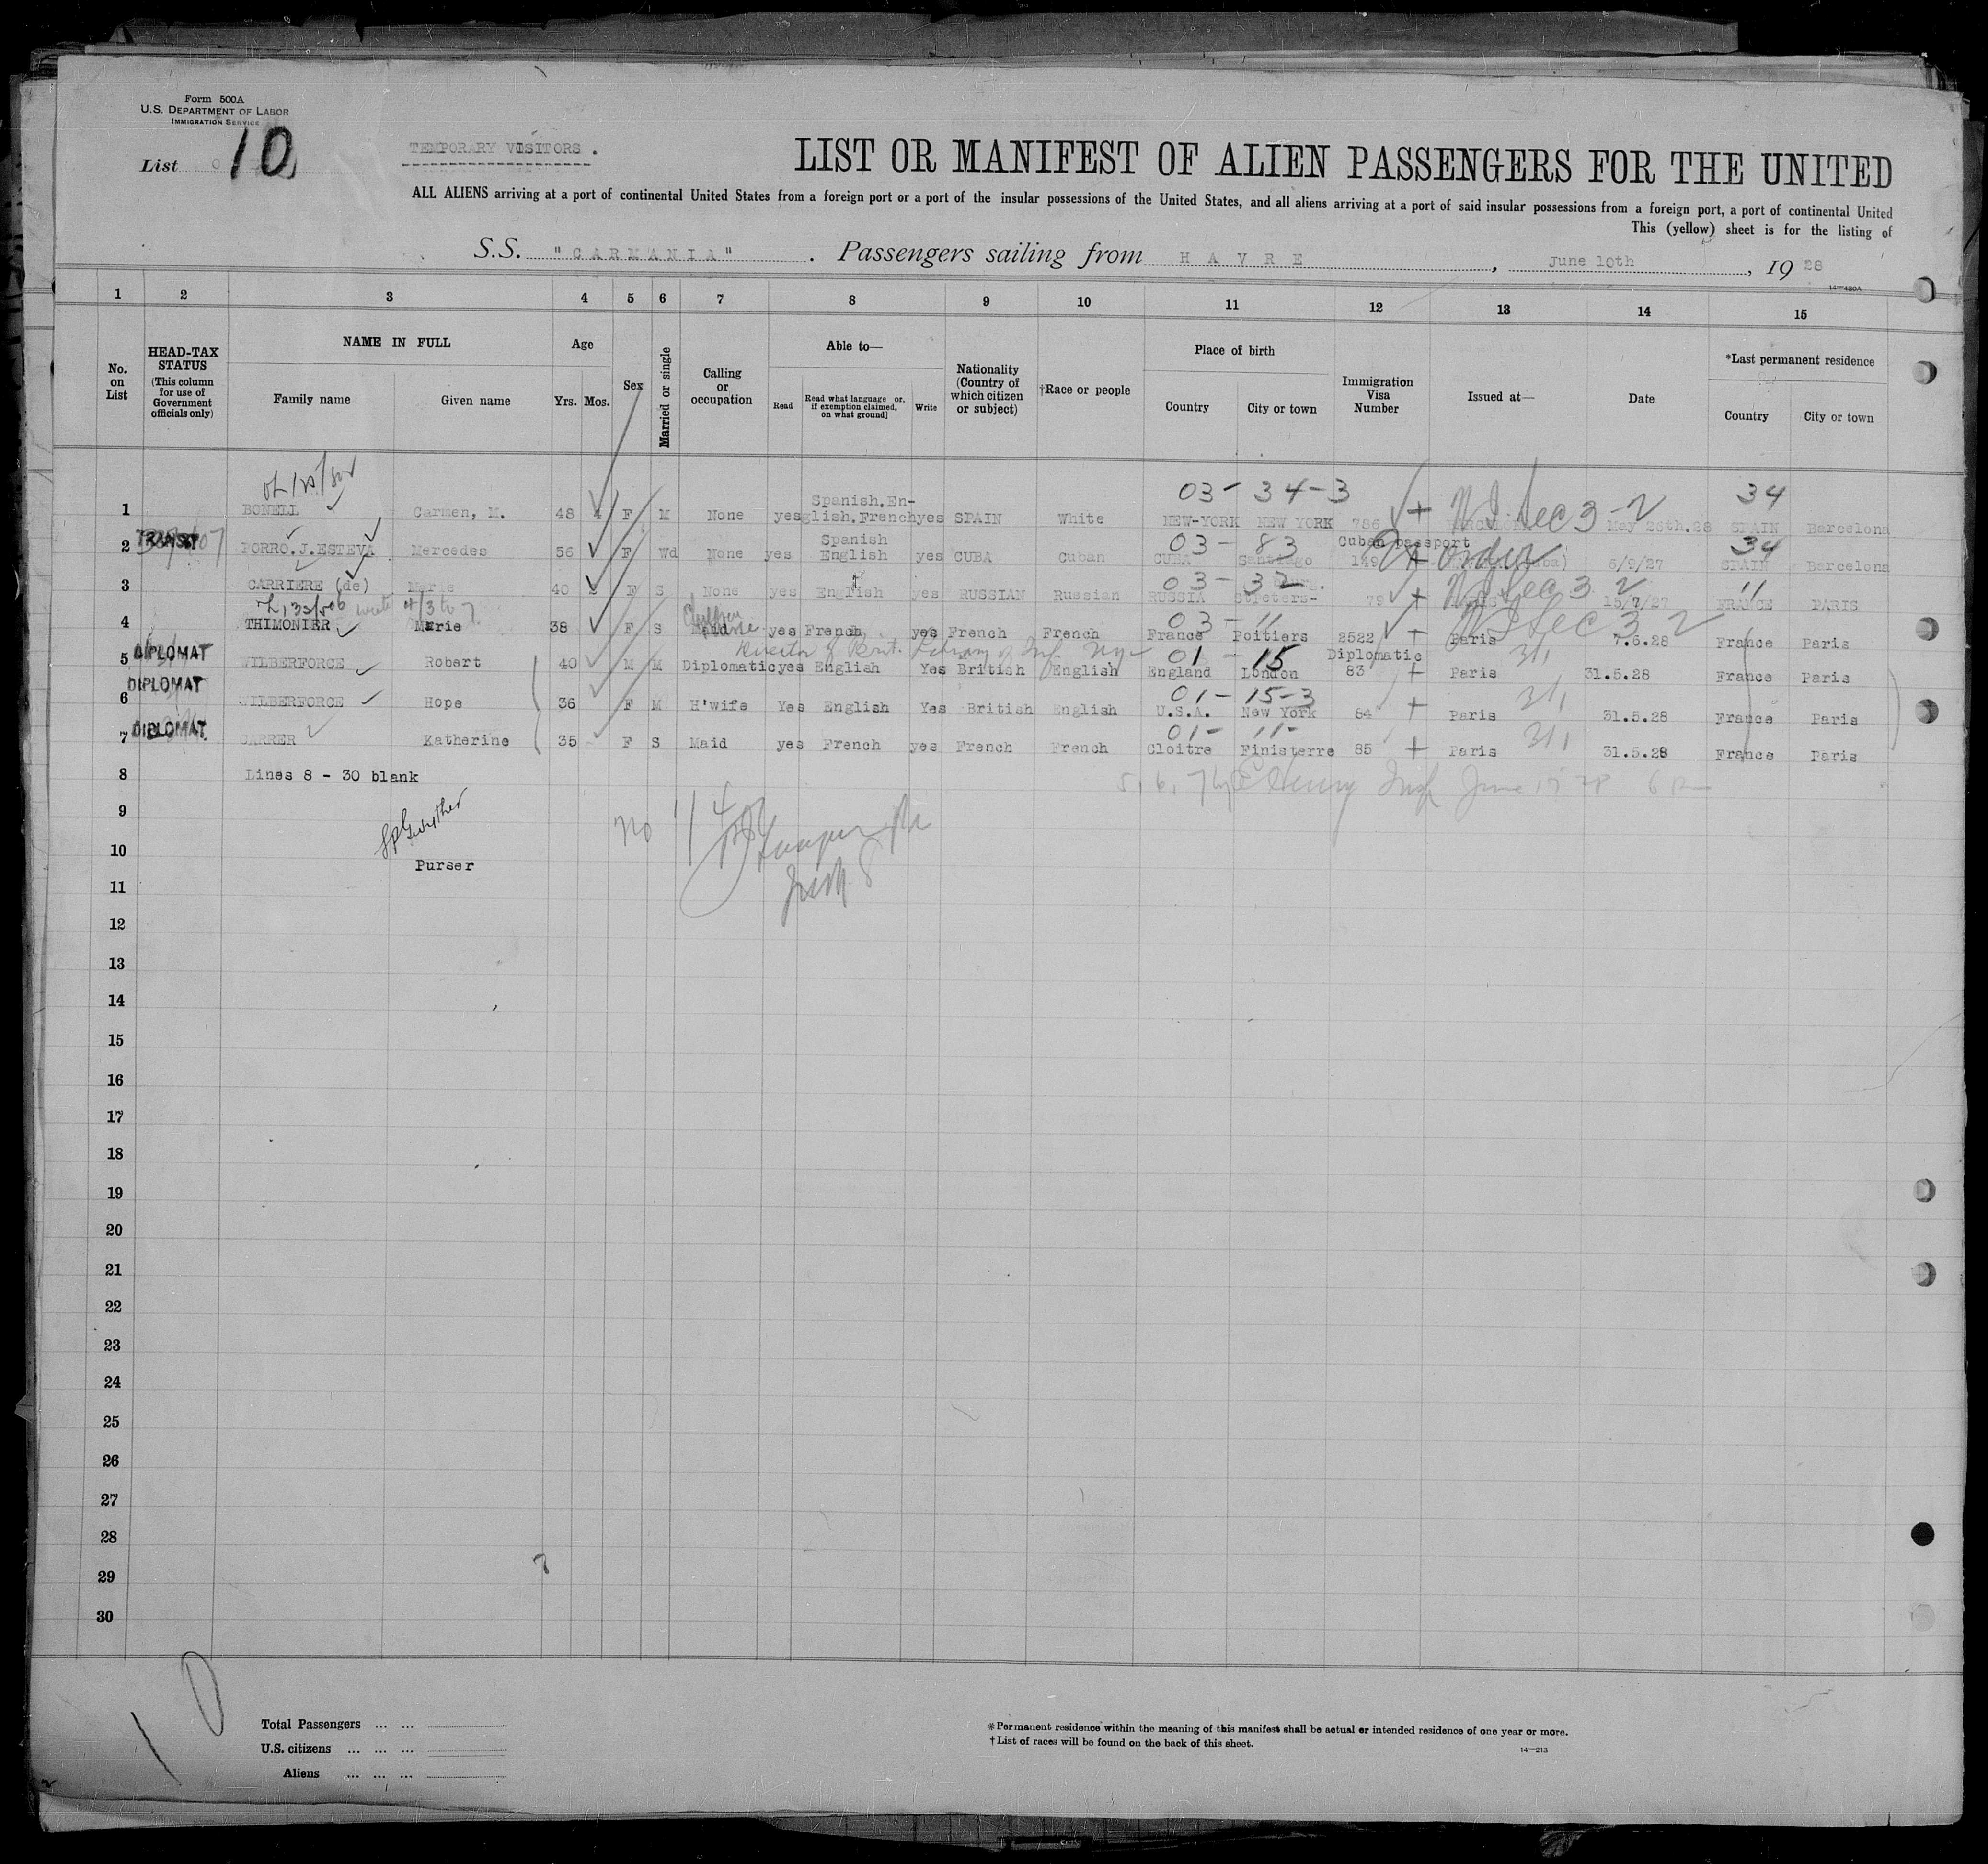 Form 500A
U.S. DEPARTMENT OF LABOR
IMMIGRATION SERVICE
List 10
TEMPORARY VISITORS.
LIST OR MANIFEST OF ALIEN PASSENGERS FOR THE UNITED
ALL ALIENS arriving at a port of continental United States from a foreign port or a port of the insular possessions of the United States, and all aliens arriving at a port of said insular possessions from a foreign port, a port of continental United
This (yellow) sheet is for the listing of
S.S. "CARMANIA". Passengers sailing from HAVRE, June 10th, 1928
14—480A
1 2 3 4 5 6 7 8 9 10 11 12 13 14 15
No. on List
HEAD-TAX STATUS (This column for use of Government officials only)
NAME IN FULL
Family name Given name
Age
Yrs. Mos.
Sex
Married or single
Calling or occupation
Able to—
Read Read what language or, if exemption claimed, on what ground] Write
Nationality (Country of which citizen or subject)
†Race or people
Place of birth
Country City or town
Immigration Visa Number
Issued at—
Date
*Last permanent residence
Country City or town
03-34-3 34
1 BONELL Carmen, M. 48 4 F M None yes Spanish.En-glish.French yes SPAIN White NEW-YORK NEW YORK 786 + N.I. Sec 3-2 May 26th.28 SPAIN Barcelona
03-83 Cuban passport 34
2 TRANSIT PORRO.J.ESTEVA Mercedes 56 F Wd None yes Spanish English yes CUBA Cuban CUBA Santiago 149 5/9/27 SPAIN Barcelona
03-32 "
3 CARRIERE (de) Marie 40 F S None yes English yes RUSSIAN Russian RUSSIA St Peters- 79 + N.I. Sec 3 2 15/7/27 FRANCE PARIS
03-"
4 THIMONIER Marie 38 F S Maid yes French yes French French France Poitiers 2522 + Paris N I Sec 3 2 7.6.28 France Paris
Director of Brit. Library of Inf. N.Y.
01-15 Diplomatic
5 DIPLOMAT WILBERFORCE Robert 40 M M Diplomatic yes English Yes British English England London 83 + Paris 3/1 31.5.28 France Paris
01-15-3
6 DIPLOMAT WILBERFORCE Hope 36 F M H'wife Yes English Yes British English U.S.A. New York 84 + Paris 3/1 31.5.28 France Paris
01-11-
7 DIPLOMAT CARRER Katherine 35 F S Maid yes French yes French French Cloitre Finisterre 85 + Paris 3/1 31.5.28 France Paris
8 Lines 8 - 30 blank
9
10 Purser
11
12
13
14
15
16
17
18
19
20
21
22
23
24
25
26
27
28
29
30
10
Total Passengers ... ...
U.S. citizens ... ... ...
Aliens ... ... ...
*Permanent residence within the meaning of this manifest shall be actual or intended residence of one year or more.
†List of races will be found on the back of this sheet.
14—213